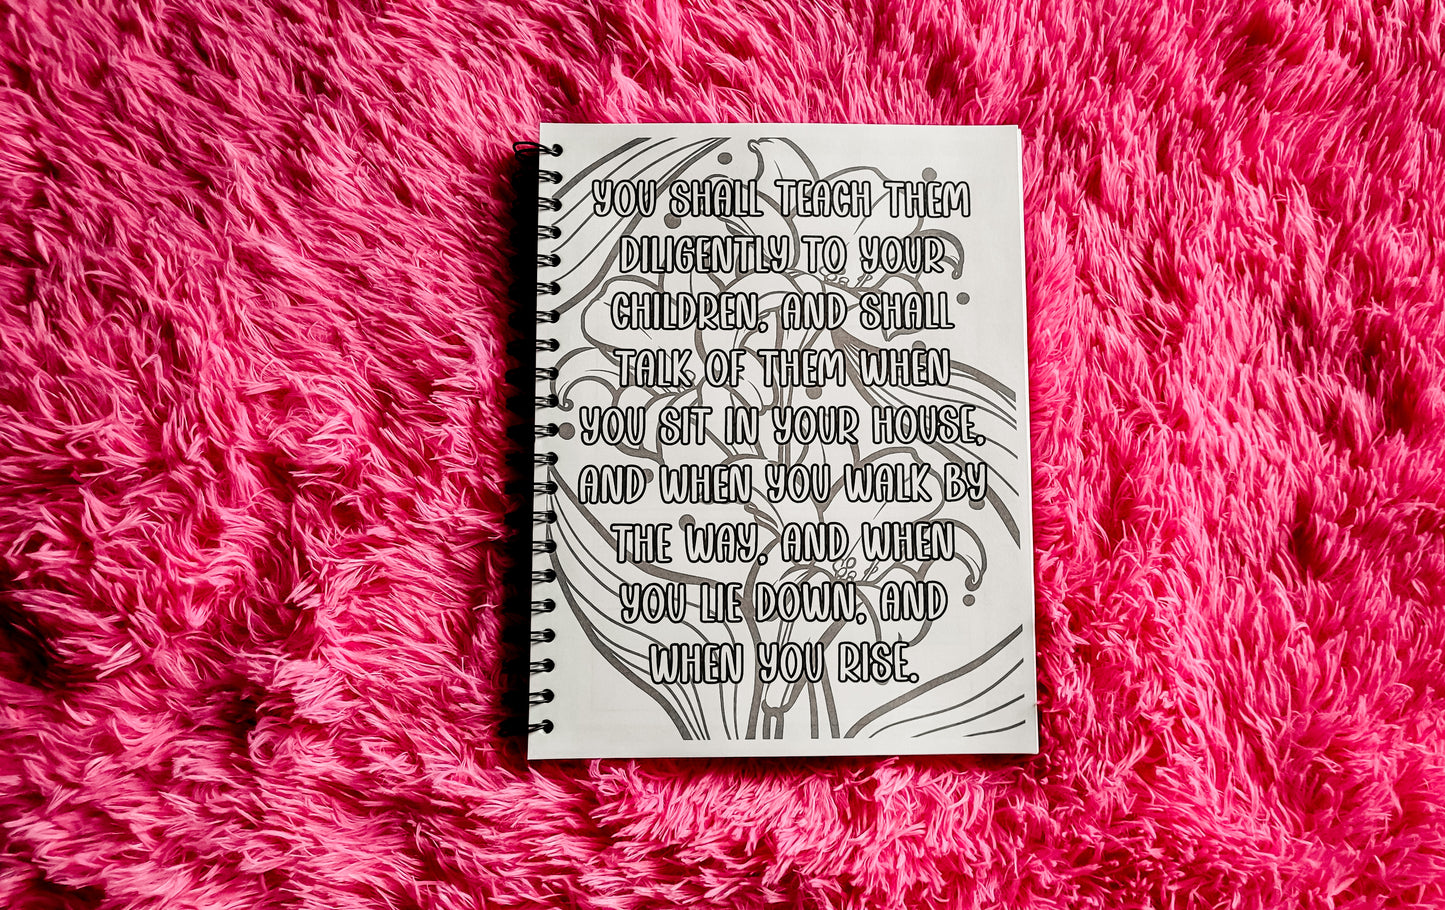 YOU SHALL TEACH THEM
DILIGENTLY TO YOUR
CHILDREN, AND SHALL
TALK OF THEM WHEN
YOU SIT IN YOUR HOUSE,
AND WHEN YOU WALK BY
THE WAY, AND WHEN
YOU LIE DOWN, AND
WHEN YOU RISE.